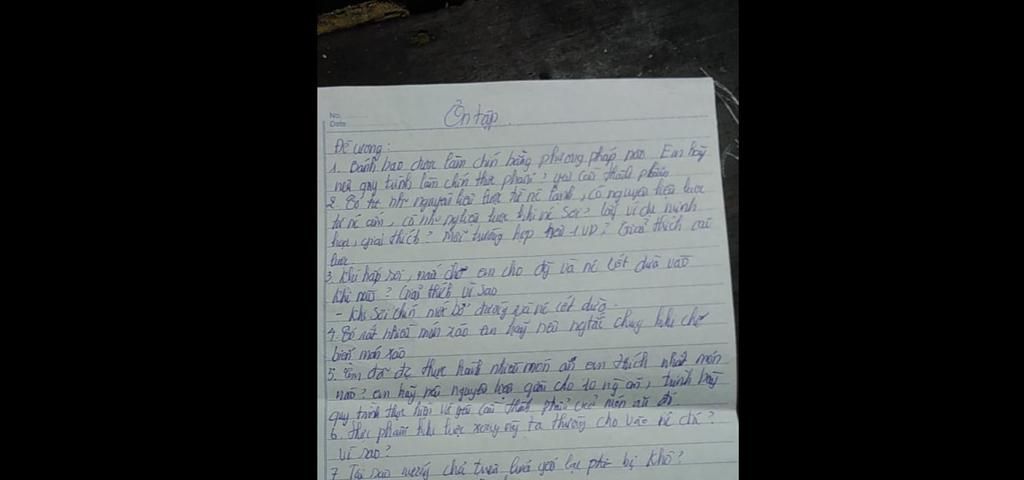 No.
Date
Ôn tập.
Đề cương:
1. Bánh bao được làm chín bằng phương pháp nào Em hãy
nêu quy trình làm chín thực phẩm? yêu cầu thành phẩm
2. Có từ nh nguyên liệu luộc từ nc lạnh, có nguyên liệu luộc
từ nc ấm, có nh luộc khi nc sôi? lấy ví dụ minh
họa, giải thích? Mỗi trường hợp nêu 1 VD? Giải thích
luộc
3. Khi hấp xôi, em cho đg và nc cốt dừa vào
khi nào? Giải thích vì sao
- Khi xôi chín mới bỏ đường và nc cốt dừa.
4. Có rất nhiều món xào em hãy nêu ngtắc chung khi chế
biến món xào
5. Em đã đc thực hành nhiều món ăn em thích nhất món
nào? em hãy nêu nguyên liệu cho 10 ng ăn, trình bày
quy trình thực hiện và yêu cầu thành phẩm của món ăn đó
6. thực phẩm khi luộc xong ta thường cho vào nc đá?
vì sao?
7. Tại sao nướng chả lại phải bị khô?